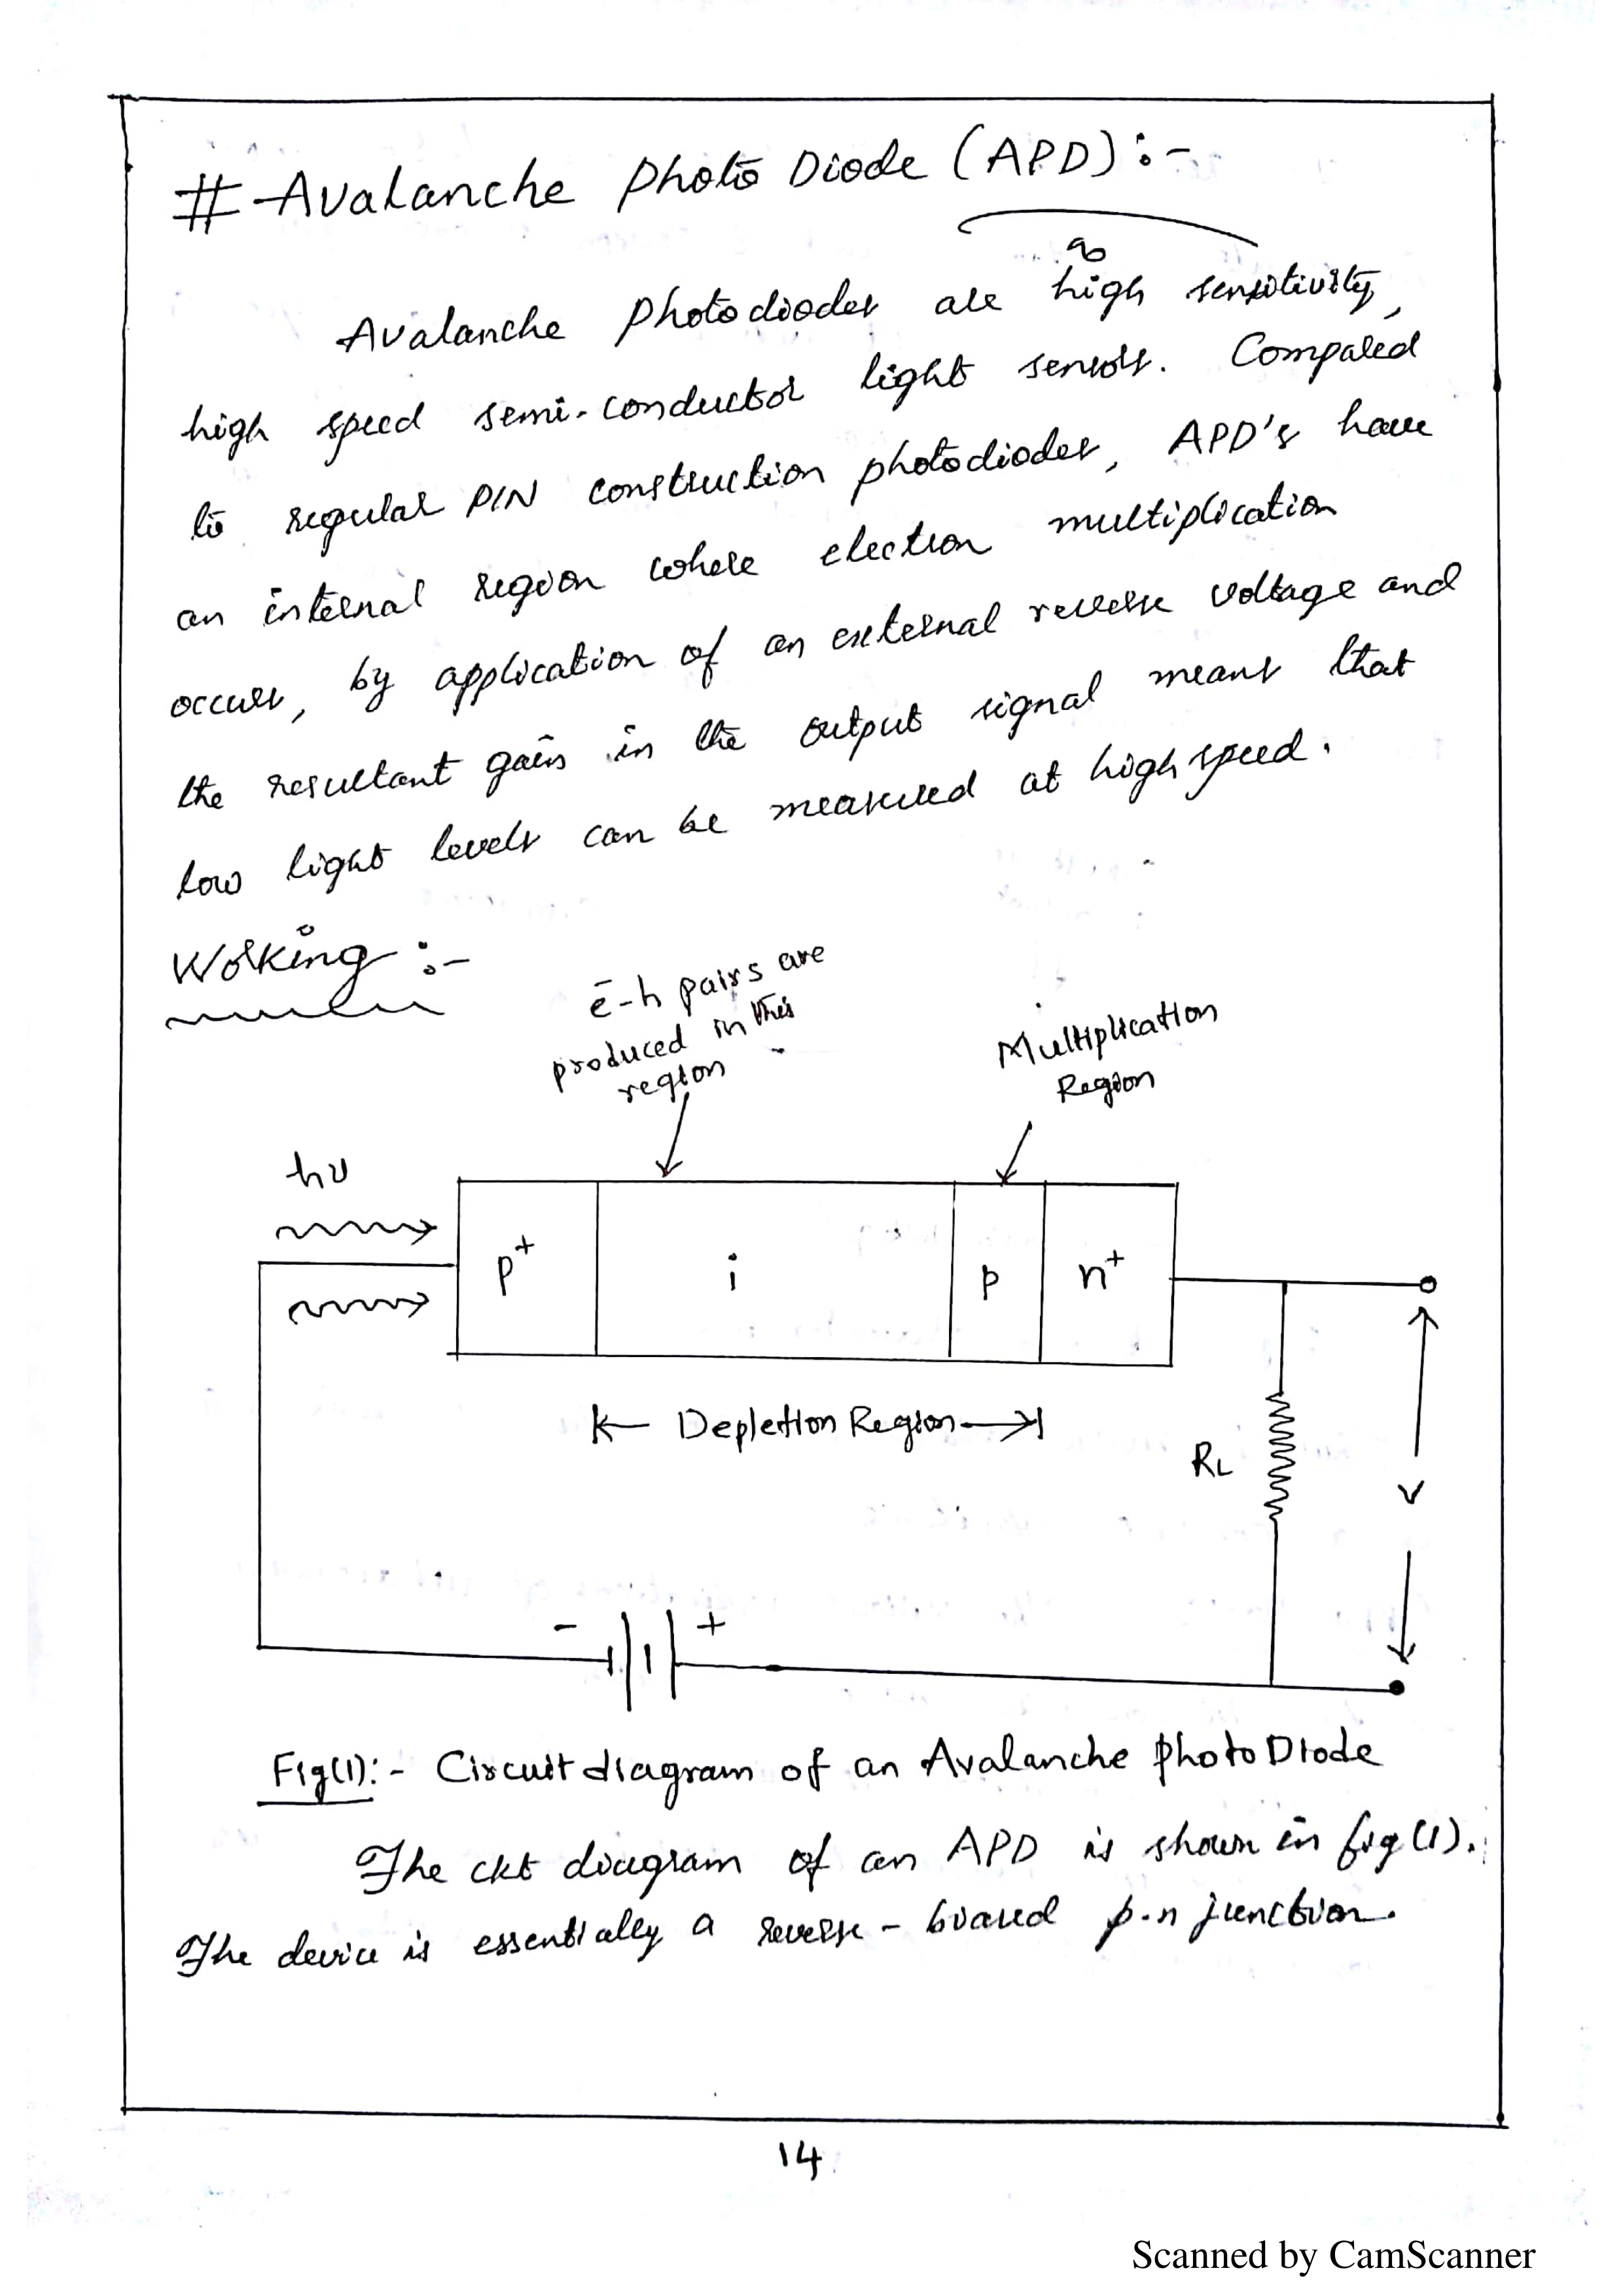 # Avalanche Photo Diode (APD) :-
Avalanche Photodiodes are high sensitivity,
high speed semi-conductor light sensors. Compared
to regular PIN construction photodiodes, APD's have
an internal region where electron multiplication
occurs, by application of an external reverse voltage and
the resultant gain in the output signal means that
low light levels can be measured at high speed.
Working :-
ē-h pairs are
produced in this
region
Multiplication
Region
hν
p+ i p n+
Depletion Region
RL
V
- +
Fig(1):- Circuit diagram of an Avalanche photo Diode
The ckt diagram of an APD is shown in fig (1).
The device is essentially a reverse - biased p-n junction.
14
Scanned by CamScanner